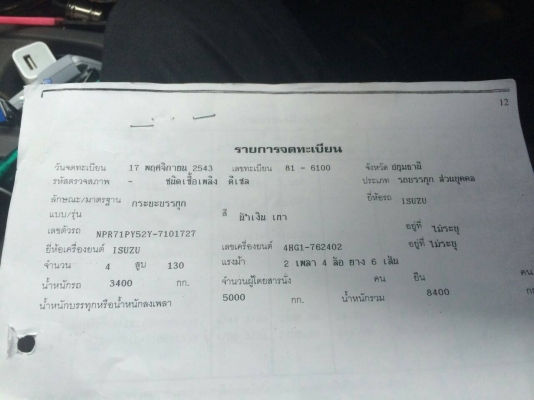 12
รายการจดทะเบียน
วันจดทะเบียน 17 พฤศจิกายน 2543 เลขทะเบียน 81 - 6100 จังหวัด ปทุมธานี
รหัสตรวจสภาพ - ชนิดเชื้อเพลิง ดีเซล ประเภท รถบรรทุก ส่วนบุคคล
ลักษณะ/มาตรฐาน กระบะบรรทุก ยี่ห้อรถ ISUZU
แบบ/รุ่น สี เทา
เลขตัวรถ NPR71PY52Y-7101727 อยู่ที่ ไม่ระบุ
ยี่ห้อเครื่องยนต์ ISUZU เลขเครื่องยนต์ 4HG1-762402 อยู่ที่ ไม่ระบุ
จำนวน 4 สูบ 130 แรงม้า 2 เพลา 4 ล้อ ยาง 6 เส้น
น้ำหนักรถ 3400 กก. จำนวนผู้โดยสารนั่ง คน ยืน คน
น้ำหนักบรรทุกหรือน้ำหนักลงเพลา 5000 กก. น้ำหนักรวม 8400